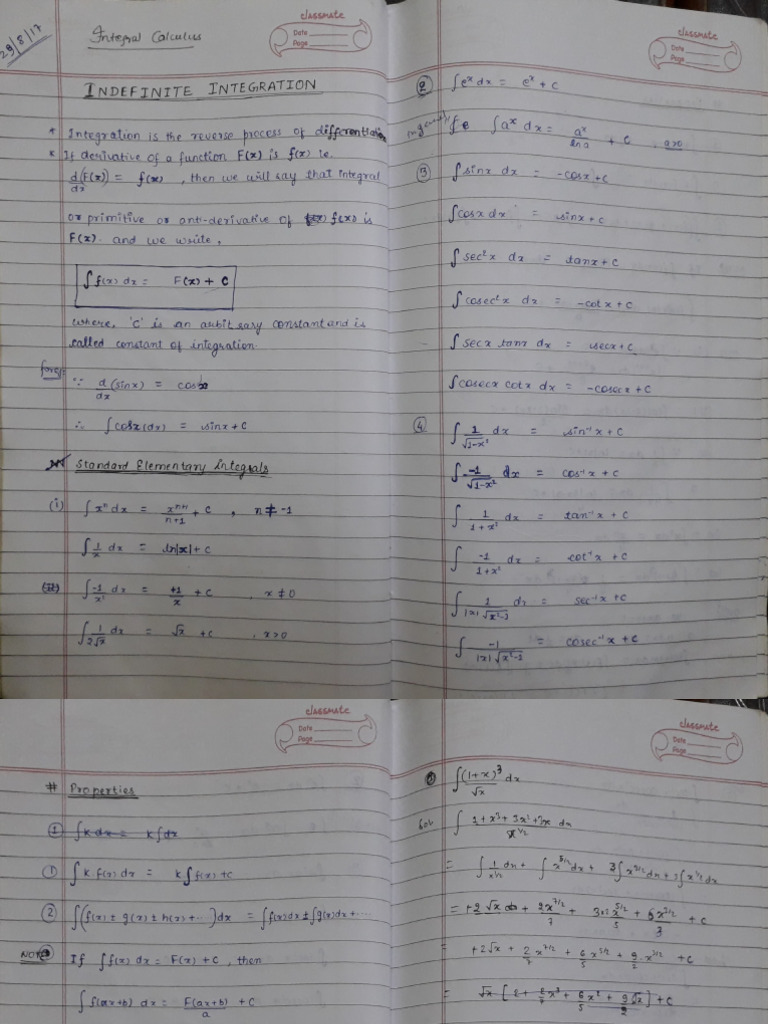 29/8/17
Integral Calculus
classmate
Date
Page
INDEFINITE INTEGRATION
* Integration is the reverse process of differentiation
* If derivative of a function F(x) is f(x) ie.
d/dx (F(x)) = f(x) , then we will say that integral
or primitive or anti-derivative of f(x) is
F(x). and we write,
∫ f(x) dx = F(x) + C
where, 'C' is an arbitrary constant and is
called constant of integration.
∵ d/dx (sinx) = cosx
∴ ∫ cosx(dx) = sinx + c
Standard Elementary Integrals
(i) ∫ xⁿ dx = xⁿ⁺¹/(n+1) + C , n ≠ -1
∫ 1/x dx = ln|x| + C
(ii) ∫ -1/x² dx = +1/x + C , x ≠ 0
∫ 1/(2√x) dx = √x + C , x>0
classmate
Date
Page
② ∫ eˣ dx = eˣ + C
∫ aˣ dx = aˣ/ln a + C , a>0
③ ∫ sinx dx = -cosx + C
∫ cosx dx = sinx + C
∫ sec²x dx = tanx + C
∫ cosec²x dx = -cotx + C
∫ secx tanx dx = secx + C
∫ cosecx cotx dx = -cosecx + C
④ ∫ 1/√(1-x²) dx = sin⁻¹x + C
∫ -1/√(1-x²) dx = cos⁻¹x + C
∫ 1/(1+x²) dx = tan⁻¹x + C
∫ -1/(1+x²) dx = cot⁻¹x + C
∫ 1/(|x|√(x²-1)) dx = sec⁻¹x + C
∫ -1/(|x|√(x²-1)) = cosec⁻¹x + C
classmate
Date
Page
# Properties
① ∫ k dx = k∫dx
① ∫ k f(x) dx = k∫ f(x) + C
② ∫(f(x) ± g(x) ± h(x) + ...)dx = ∫f(x)dx ± ∫g(x)dx + ....
NOTE If ∫ f(x) dx = F(x) + C , then
∫ f(ax+b) dx = F(ax+b)/a + C
classmate
Date
Page
∫ (1+x)³/√x dx
Sol. ∫ (1 + x³ + 3x² + 3x)/x^(1/2) dx
= ∫ 1/x^(1/2) dx + ∫ x^(5/2) dx + 3∫x^(3/2) dx + 3∫x^(1/2) dx